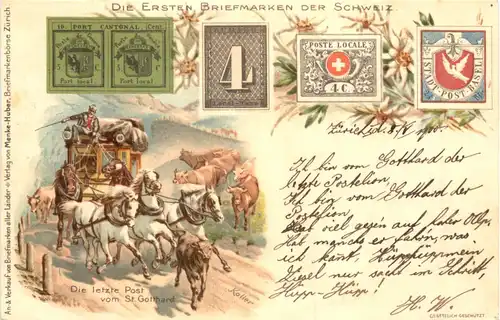 DIE ERSTEN BRIEFMARKEN DER SCHWEIZ.
10. PORT CANTONAL. Cent.
5 C. 5 C.
Port local Port local
4
POSTE LOCALE
4 C
STADT-POST-BASEL
An- & Verkauf von Briefmarken aller Länder + Verlag von Menke-Huber, Briefmarkenbörse Zürich.
Zürich, d.
Ich bin vom Gotthard der
letzte Postelion,
Ich bin vom Gotthard der
Postelion.
viel gegen auf hoher Alp,
Hat manches erfahren, was
ich kannt,
nur sacht im Schritt,
Hüpp-Hüpp!
H. W.
Die letzte Post
vom St. Gotthard
GESETZLICH GESCHÜTZT.